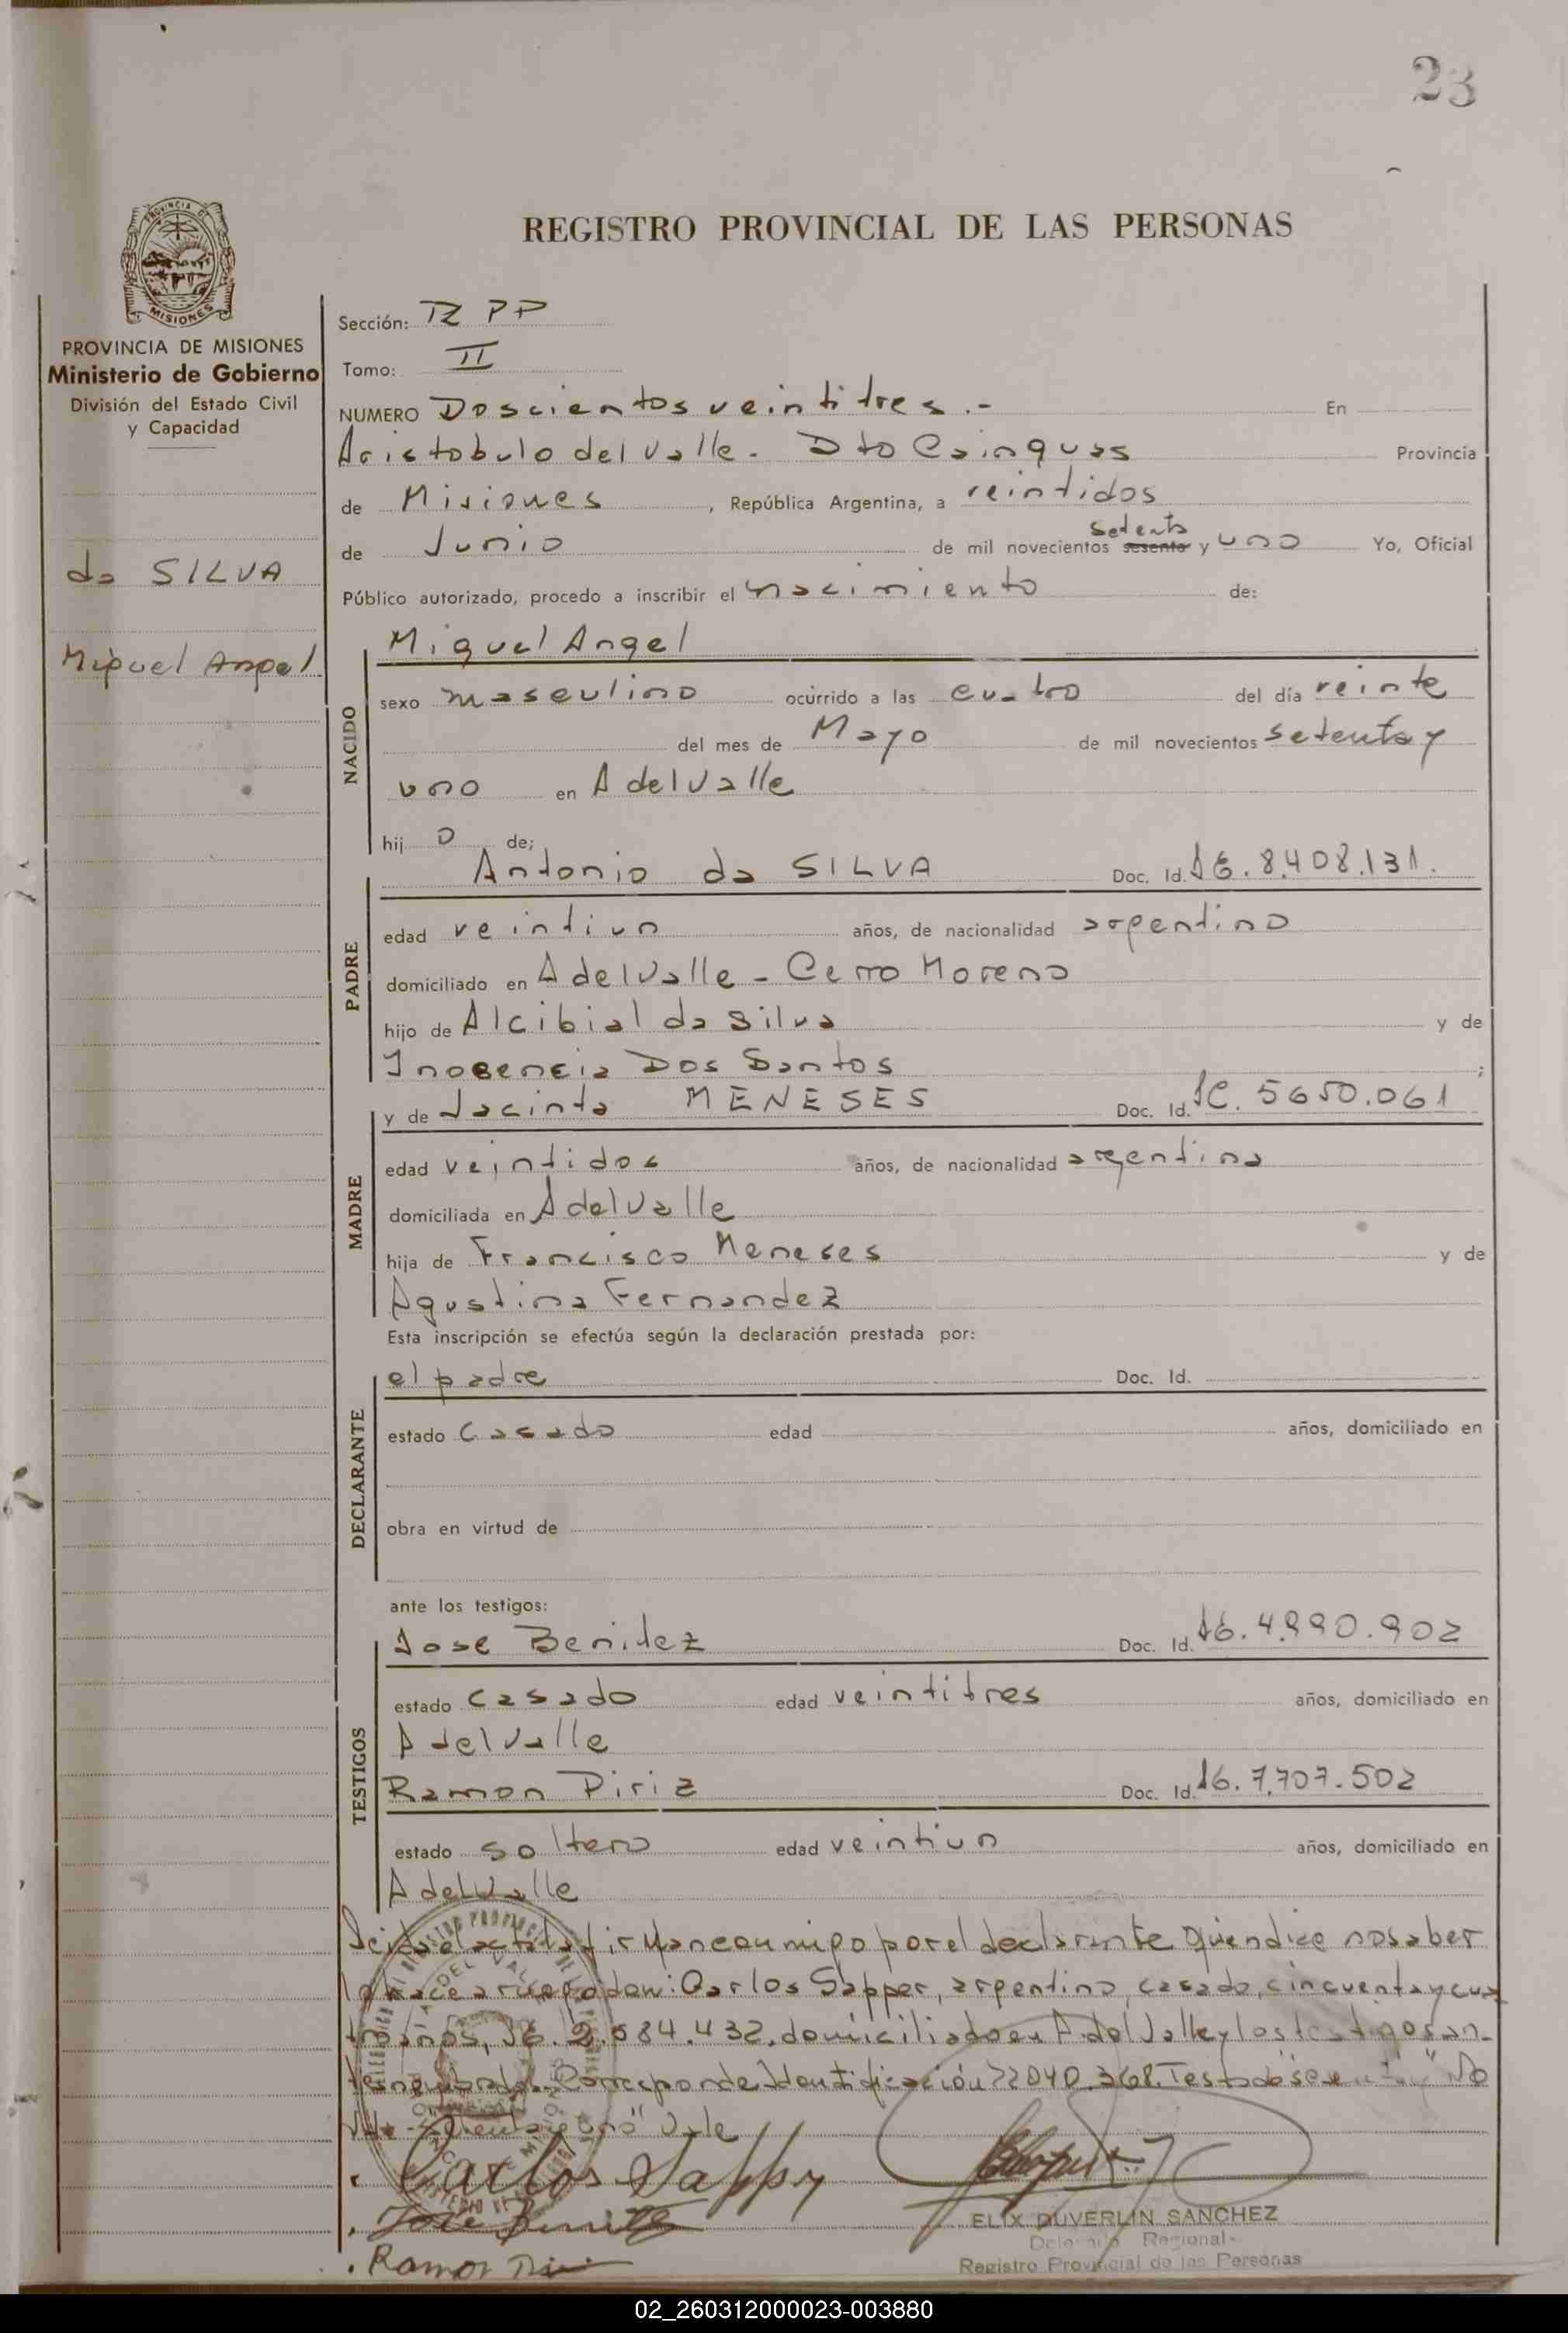 23
REGISTRO PROVINCIAL DE LAS PERSONAS
PROVINCIA DE MISIONES
Ministerio de Gobierno
División del Estado Civil
y Capacidad
da SILVA
Miguel Angel
Sección: RPP
Tomo: II
NUMERO Doscientos veintitres.- En
Aristobulo del Valle. Dto Cainguas Provincia
de Misiones, República Argentina, a veintidos
setenta
de Junio de mil novecientos sesenta y uno Yo, Oficial
Público autorizado, procedo a inscribir el nacimiento de:
NACIDO
Miguel Angel
sexo masculino ocurrido a las cuatro del día veinte
del mes de Mayo de mil novecientos setenta y
uno en A del Valle
hijo de;
PADRE
Antonio da SILVA Doc. Id. 8.408.131.
edad veintiun años, de nacionalidad argentino
domiciliado en A del Valle - Cerro Moreno
hijo de Alcibial da Silva y de
Inosencia Dos Santos;
MADRE
y de Jacinta MENESES Doc. Id. 5650.061
edad veintidos años, de nacionalidad argentina
domiciliada en A del Valle
hija de Francisco Meneses y de
Agustina Fernandez
Esta inscripción se efectúa según la declaración prestada por:
DECLARANTE
el padre Doc. Id.
estado casado edad años, domiciliado en
obra en virtud de
ante los testigos:
TESTIGOS
Jose Benitez Doc. Id. 4.990.902
estado casado edad veintitres años, domiciliado en
A del Valle
Ramon Piriz Doc. Id. 7.707.502
estado soltero edad veintiun años, domiciliado en
A del Valle
Leida el acta la firman conmigo por el declarante quien dice no saber
lo hace a ruego don: Carlos Sapper, argentino, casado, cincuenta y cua
tro años, 2.684.432, domiciliado en A. del Valle y los testigos an-
tes nombrados. Corresponde Identificación 22040.368. Testado "sesenta y" No
Vale - "setenta y uno" Vale
Carlos Sapper
Jose Benitez
Ramon Piriz
ELIX DUVERLIN SANCHEZ
Delegado Regional
Registro Provincial de las Personas
02_260312000023-003880